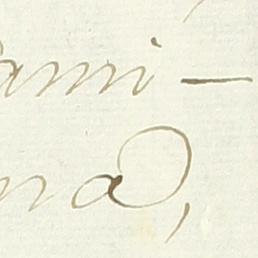 ami-
na,